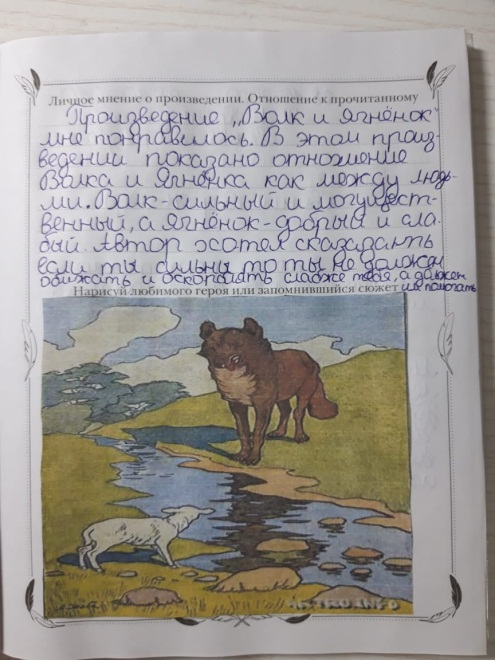 Личное мнение о произведении. Отношение к прочитанному
Произведение „Волк и Ягнёнок"
мне понравилось. В этом произ-
ведении показано отношение
Волка и Ягнёнка как между людь-
ми. Волк-сильный и могущест-
венный, а ягнёнок-добрый и сла-
бый. Автор хотел сказаать
если ты сильны то ты не должен
обижать и оскорблять слабже тебя, а должен
Нарисуй любимого героя или запомнившийся сюжет им помогать